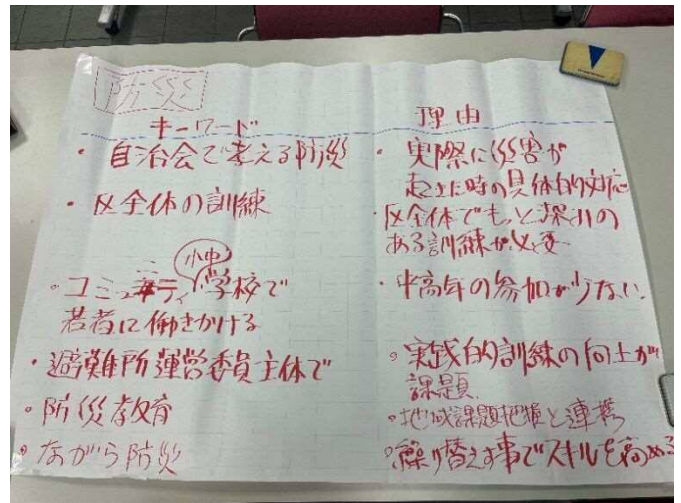 防災
キーワード
・自治会で考える防災
・区全体の訓練
小中
・コミュニティ学校で
若者に働きかける
・避難所運営委員主体で
・防災教育
・ながら防災
理由
・実際に災害が
起きた時の具体的対応
・区全体でもっと深みの
ある訓練が必要
・中高年の参加が少ない
・実践的訓練の向上が
課題
・地域課題把握と連携
・繰り替えす事でスキルを高める